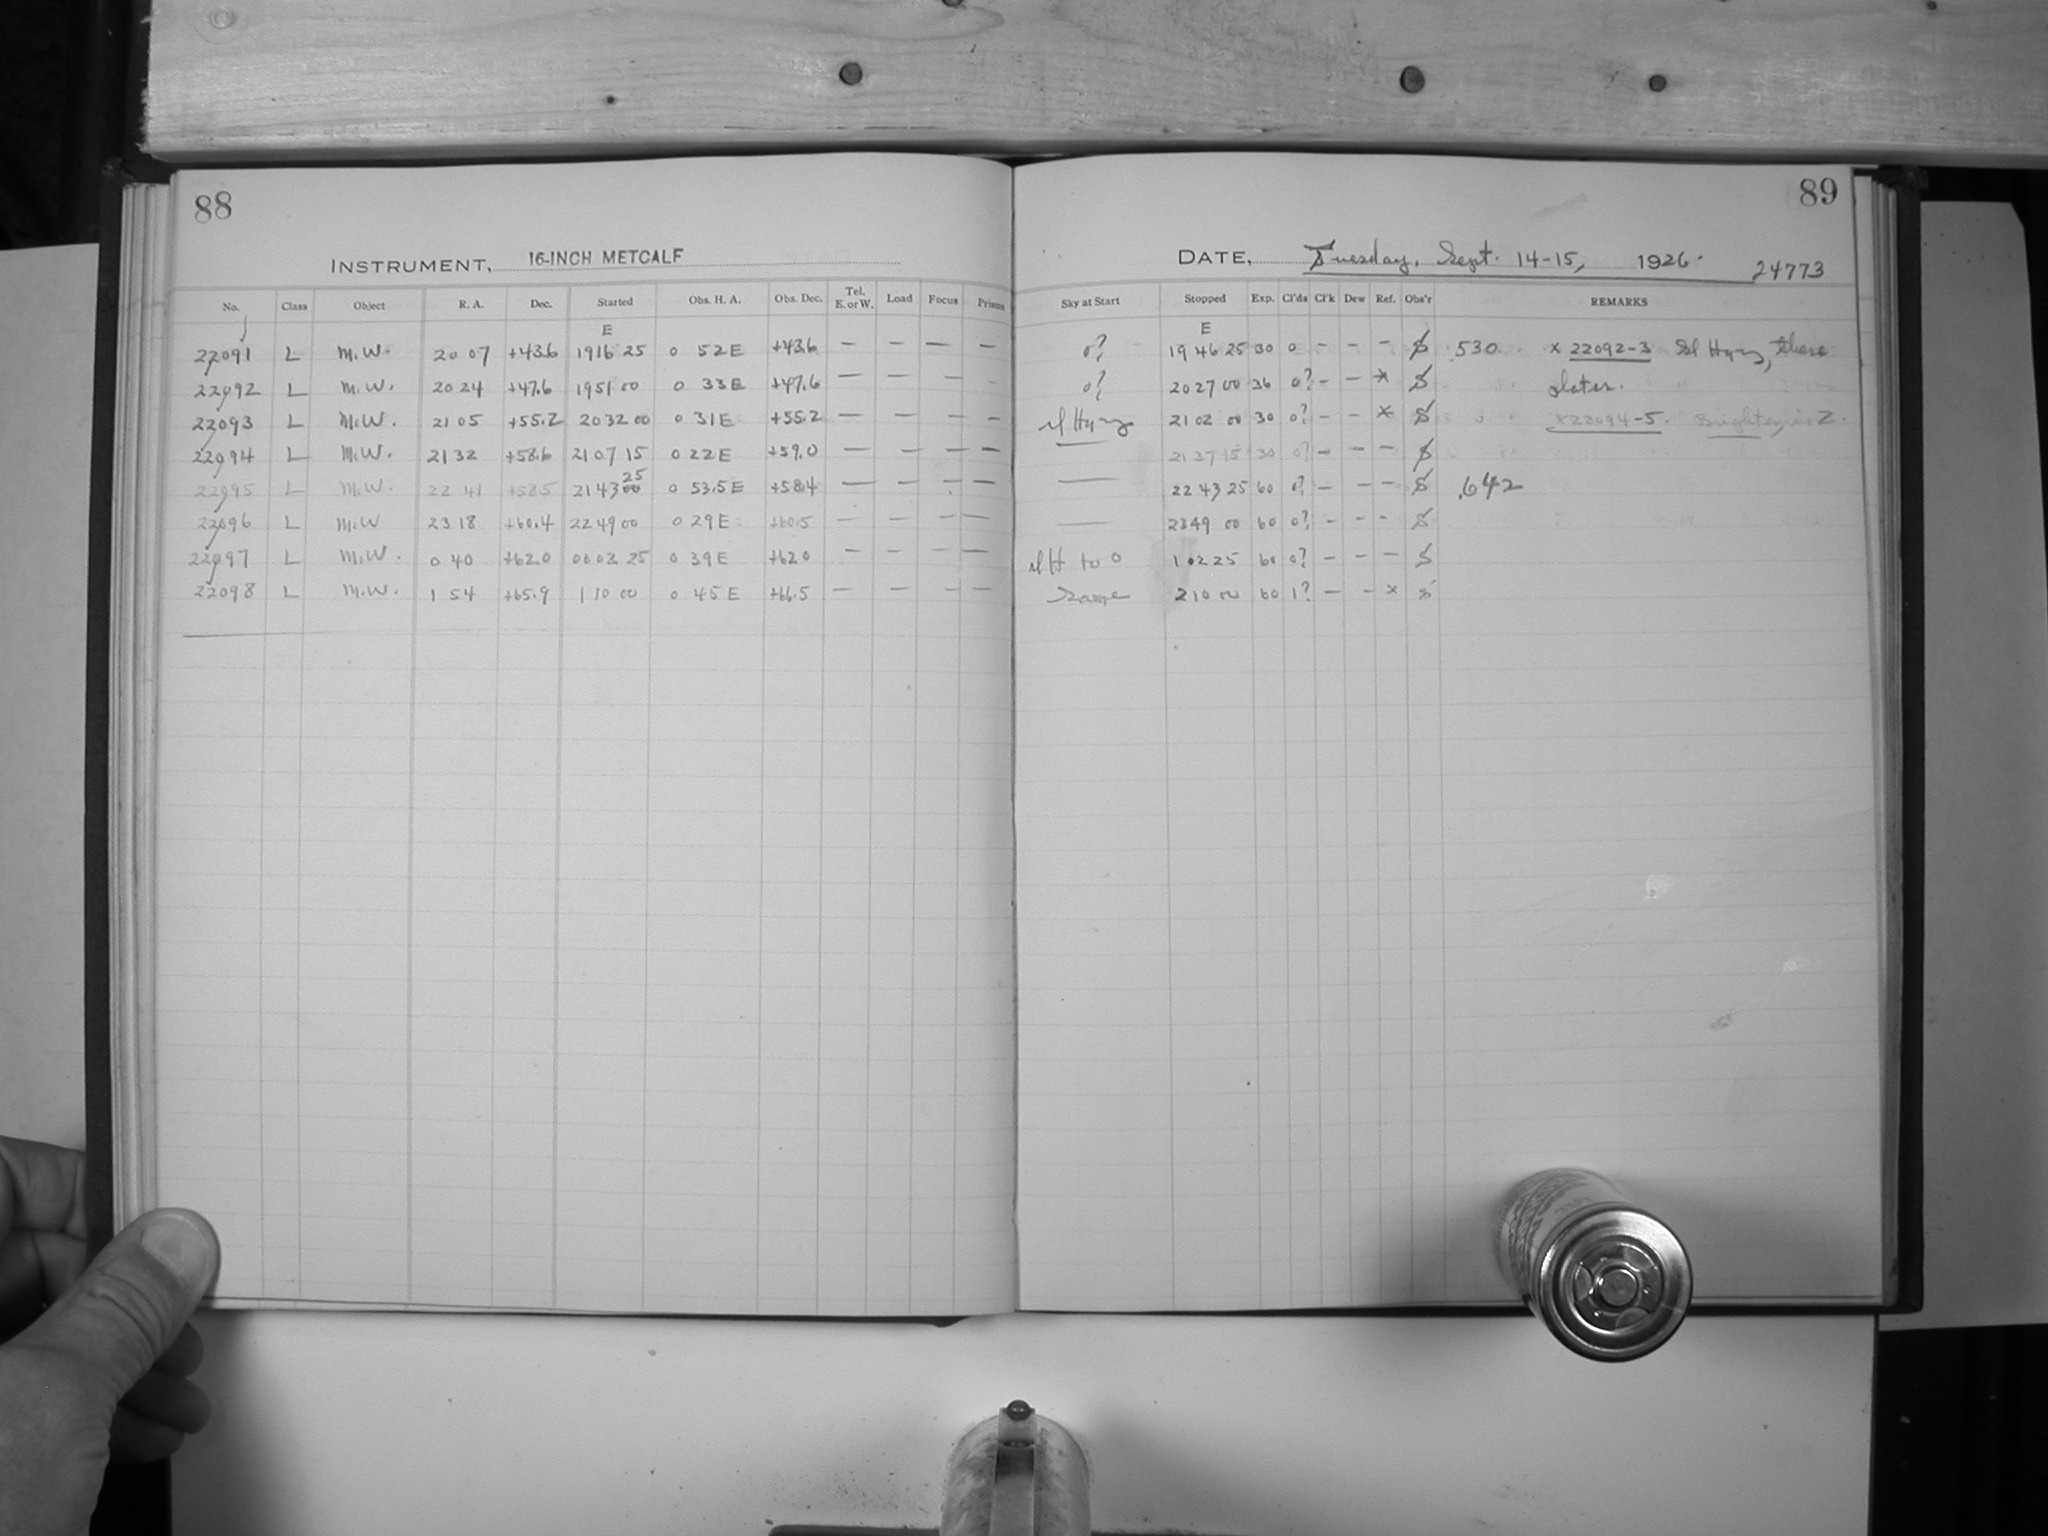 88
INSTRUMENT, 16-INCH METCALF
No. Class Object R. A. Dec. Started Obs. H. A. Obs. Dec. Tel. E. or W. Load Focus Prisms
E
22091 L M.W. 20 07 +43.6 19 16 25 0 52 E +43.6 — — — —
22092 L M.W. 20 24 +47.6 19 51 00 0 33 E +47.6 — — — -
22093 L M.W. 21 05 +55.2 20 32 00 0 31 E +55.2 — — — —
22094 L M.W. 21 32 +58.6 21 07 15 0 22 E +59.0 — — — —
22095 L M.W. 22 41 +58.5 21 43 25 0 53.5 E +58.4 — — — —
22096 L M.W 23 18 +60.4 22 49 00 0 29 E +60.5 — — — —
22097 L M.W. 0 40 +62.0 00 02 25 0 39 E +62.0 — — — —
22098 L M.W. 1 54 +65.9 1 10 00 0 45 E +66.5 — — — —
89
DATE, Tuesday, Sept. 14-15, 1926. 24773
Sky at Start Stopped Exp. Cl'ds Cl'k Dew Ref. Obs'r REMARKS
E
0? 19 46 25 30 0 - - - 530 x 22092-3 Sl Hazy, there
0? 20 27 00 36 0? - - * later.
sl Hazy 21 02 00 30 0? - - * x 22094-5. Brighten, in Z.
— 21 37 15 30 0? - - -
— 22 43 25 60 0? - - - .642
— 23 49 00 60 0? - - -
sl H to 0 1 02 25 60 0? - - -
Same 2 10 00 60 1? - - x